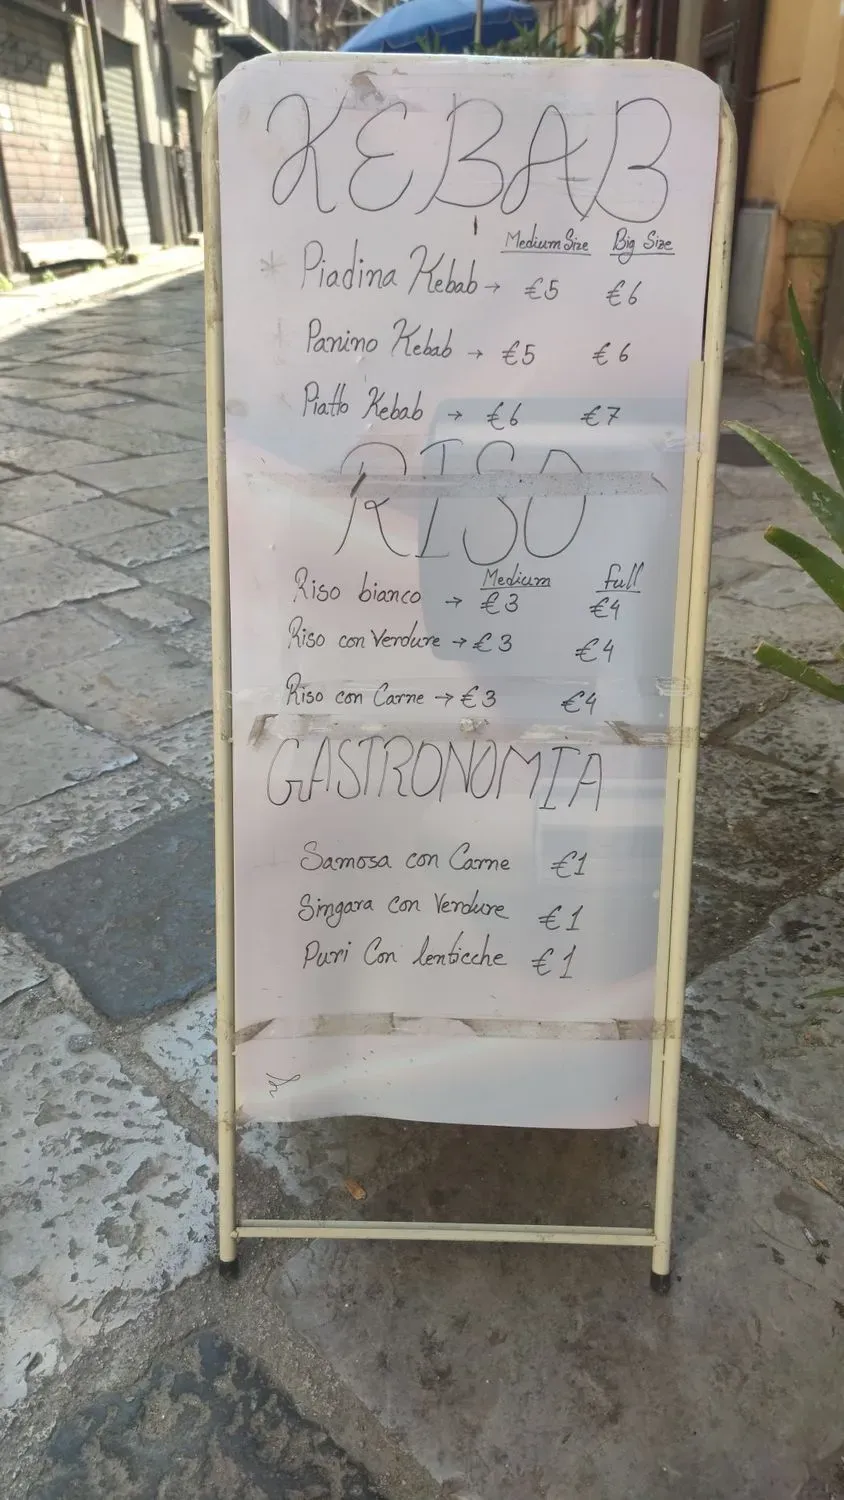 KEBAB
Medium Size Big Size
* Piadina Kebab → €5 €6
* Panino Kebab → €5 €6
Piatto Kebab → €6 €7
RISO
Medium Full
Riso bianco → €3 €4
Riso con Verdure → €3 €4
Riso con Carne → €3 €4
GASTRONOMIA
Samosa con Carne €1
Singara con Verdure €1
Puri Con lenticche €1